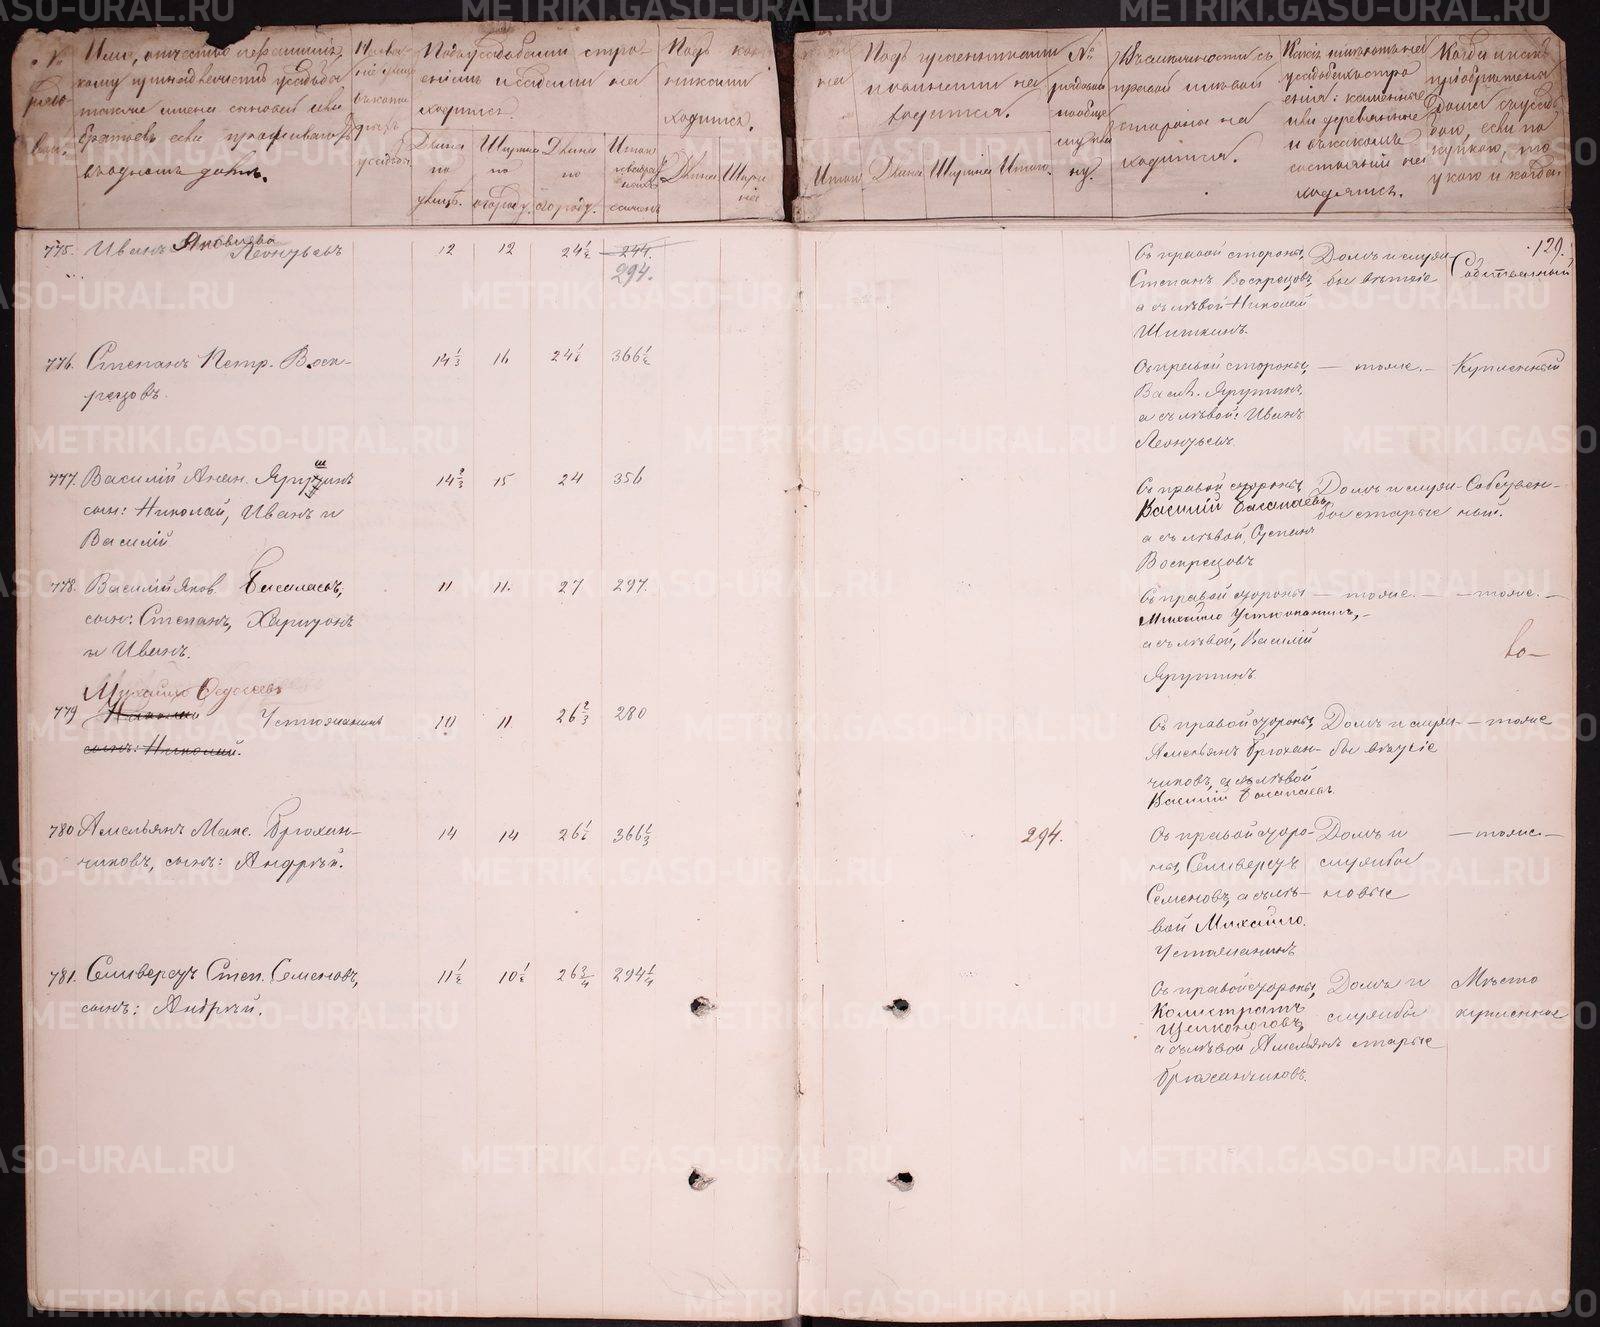 №
Имя, отчество и фамилия,
кому принадлежитъ усадьба
также имена сыновей или
братьевъ если проживаютъ
въ одномъ домѣ.
усадьба
Подъ усадьбами строе
ніемъ и садами на
ходится.
Длина
по
улицѣ.
Ширина
по
огороду.
Длина
по
огороду.
Итого
квадрат
сажень
Подъ
ходится.
Длина
Шири
на
на
Итого
Подъ
на
ходится.
Длина
Ширина
Итого.
№
ну.
Въ смежности съ
правой и лѣвой
стороны на
ходится.
Какія имѣютъ на
усадьбахъ строе
нія: каменные
или деревянные
и въ какомъ
состояніи на
ходятся.
Когда и какъ
пріобрѣтена
усадь
бою, если по
купкою, то
у кого и когда.
129.
775. Иванъ Яковлевъ Леонтьевъ 12 12 24½ 244.
294.
Съ правой стороны,
Степанъ Воскрецовъ,
а съ лѣвой Николай
Шиткинъ.
Домъ и служ-
бы ветхіе
Собственный
776. Степанъ Петр. Воск-
рецовъ. 14⅓ 16 24½ 366½
Съ правой стороны,
Васил. Ярушинъ,
а съ лѣвой: Иванъ
Леонтьевъ.
— тоже. —
Купленный
777. Василій Анан. Ярушинъ
сын: Николай, Иванъ и
Василій 14⅔ 15 24 356
Съ правой стороны,
Василій Басалаевъ,
а съ лѣвой, Степанъ
Воскрецовъ
Домъ и служ-
бы старые
Собствен-
ный.
778. Василій Яков. Басалаевъ,
сын: Степанъ, Харитонъ
и Иванъ. 11 11. 27 297.
Съ правой стороны
Михайло Устюжанинъ,
а съ лѣвой, Василій
Ярушинъ.
— тоже. —
— тоже. —
779 Михаилъ Федосеевъ
Устюжанинъ
сынъ: Николай. 10 11 26⅔ 280
Съ правой стороны,
Амельянъ Брюхан-
чиковъ, а съ лѣвой
Василій Басалаевъ
Домъ и служ-
бы
— тоже
780 Амельянъ Макс. Брюхан-
чиковъ, сынъ: Андрѣй. 14 14 26½ 366⅓
294.
Съ правой сторо-
ны, Селиверстъ
Семеновъ, а съ лѣ-
вой Михайло
Устюжанинъ
Домъ и
службы
новые
— тоже. —
781. Селиверстъ Степ. Семеновъ,
сынъ: Андрѣй. 11½ 10½ 26¾ 294¼
Съ правой стороны,
Калистратъ
Щелконоговъ,
а съ лѣвой Амельянъ
Брюханчиковъ.
Домъ и
службы
старые
Мѣсто
купленное
METRIKI.GASO-URAL.RU